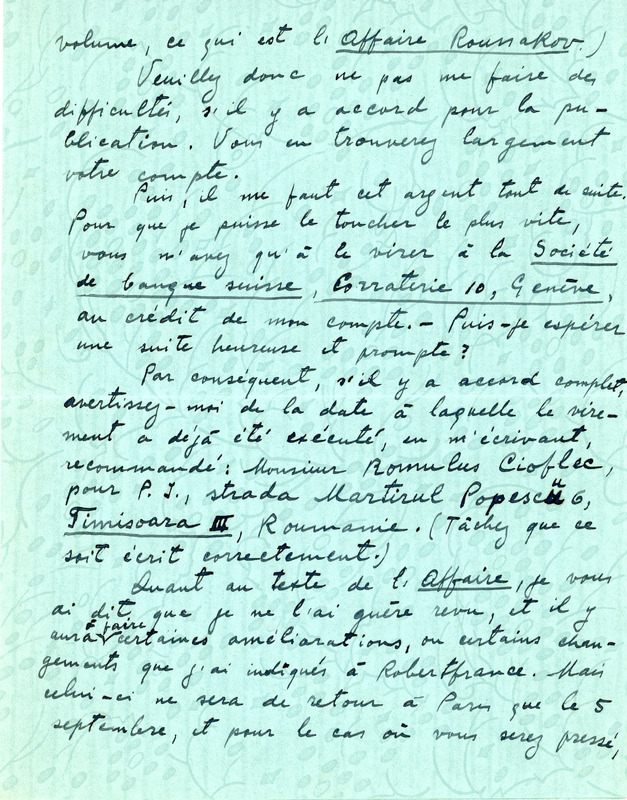 volume, ce qui est l'Affaire Roussakov.)
Veuillez donc ne pas me faire des
difficultés, s'il y a accord pour la pu-
blication. Vous en trouverez largement
votre compte.
Puis, il me faut cet argent tout de suite.
Pour que je puisse le toucher le plus vite,
vous n'avez qu'à le virer à la Société
de banque suisse, Corraterie 10, Genève,
au crédit de mon compte. – Puis-je espérer
une suite heureuse et prompte?
Par conséquent, s'il y a accord complet,
avertissez-moi de la date à laquelle le vire-
ment a déjà été exécuté, en m'écrivant,
recommandé: Monsieur Romulus Cioflec,
pour P. I., strada Martirul Popescu 6,
Timisoara III, Roumanie. (Tâchez que ce
soit écrit correctement.)
Quant au texte de l'Affaire, je vous
ai dit que je ne l'ai guère revu, et il y
aura à faire certaines améliarations, ou certains chan-
gements que j'ai indiqués à Robertfrance. Mais
celui-ci ne sera de retour à Paris que le 5
septembre, et pour le cas où vous serez pressé,